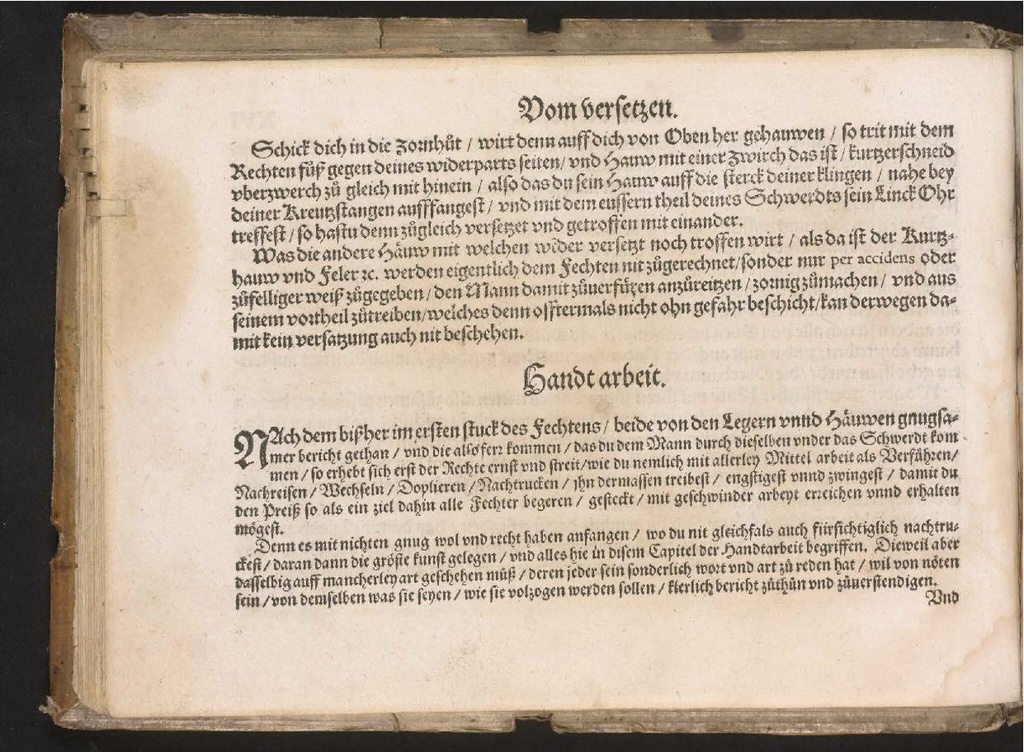 Vom versetzen.
Schick dich in die Zornhůt / wirt denn auff dich von Oben her gehauwen / so trit mit dem
Rechten fůß gegen deines widerparts seiten / vnd Hauw mit einer Zwirch das ist / kurtzerschneid
vberzwerch zů gleich mit hinein / also das du sein Hauw auff die sterck deiner klingen / nahe bey
deiner Kreutzstangen aufffangest / vnd mit dem eussern theil deines Schwerdts sein Linck Ohr
treffest / so hastu denn zůgleich versetzet vnd getroffen mit einander.
Was die andere Häuw mit welchen weder versetzt noch troffen wirt / als da ist der Kurtz-
hauw vnd Feler ꝛc. werden eigentlich dem Fechten nit zůgerechnet / sonder nur per accidens oder
zůfelliger weiß zůgegeben / den Mann damit zůuerfüren anzůreitzen / zornig zůmachen / vnd aus
seinem vortheil zůtreiben / welches denn offtermals nicht ohn gefahr beschicht / kan derwegen da-
mit kein versatzung auch nit beschehen.
Handt arbeit.
NAch dem bißher im ersten stuck des Fechtens / beide von den Legern vnnd Häuwen gnugsa-
mer bericht gethan / vnd die also ferr kommen / das du dem Mann durch dieselben vnder das Schwerdt kom
men / so erhebt sich erst der Rechte ernst vnd streit / wie du nemlich mit allerley Mittel arbeit als Verfůhren /
Nachreisen / Wechseln / Doplieren / Nachtrucken / ihn dermassen treibest / engstigest vnnd zwingest / damit du
den Preiß so als ein ziel dahin alle Fechter begeren / gesteckt / mit geschwinder arbeyt erreichen vnnd erhalten
mögest.
Denn es mit nichten gnug wol vnd recht haben anfangen / wo du nit gleichfals auch fürsichtiglich nachtru-
ckest / daran dann die gröste kunst gelegen / vnd alles hie in disem Capitel der Handtarbeit begriffen. Dieweil aber
dasselbig auff mancherley art geschehen můß / deren jeder sein sonderlich wort vnd art zů reden hat / wil von nöten
sein / von demselben was sie seyen / wie sie volzogen werden sollen / klerlich bericht zůthůn vnd zůuerstendigen.
Vnd